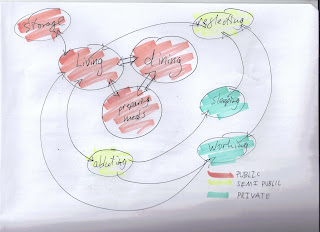 storage
Living
dining
preparing
meals
sleeping
working
abluting
PUBLIC
SEMI PUBLIC
PRIVATE